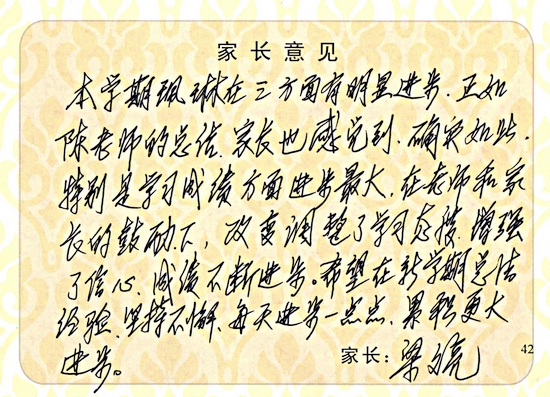 家长意见
本学期珮琳在三方面有明显进步.正如
陈老师的总结.家长也感觉到.确实如此.
特别是学习成绩方面进步最大.在老师和家
长的鼓励下，改变调整了学习态度.增强
了信心.成绩不断进步。希望在新学期总结
经验.坚持不懈.每天进步一点点.累积更大
进步。
家长：梁
42